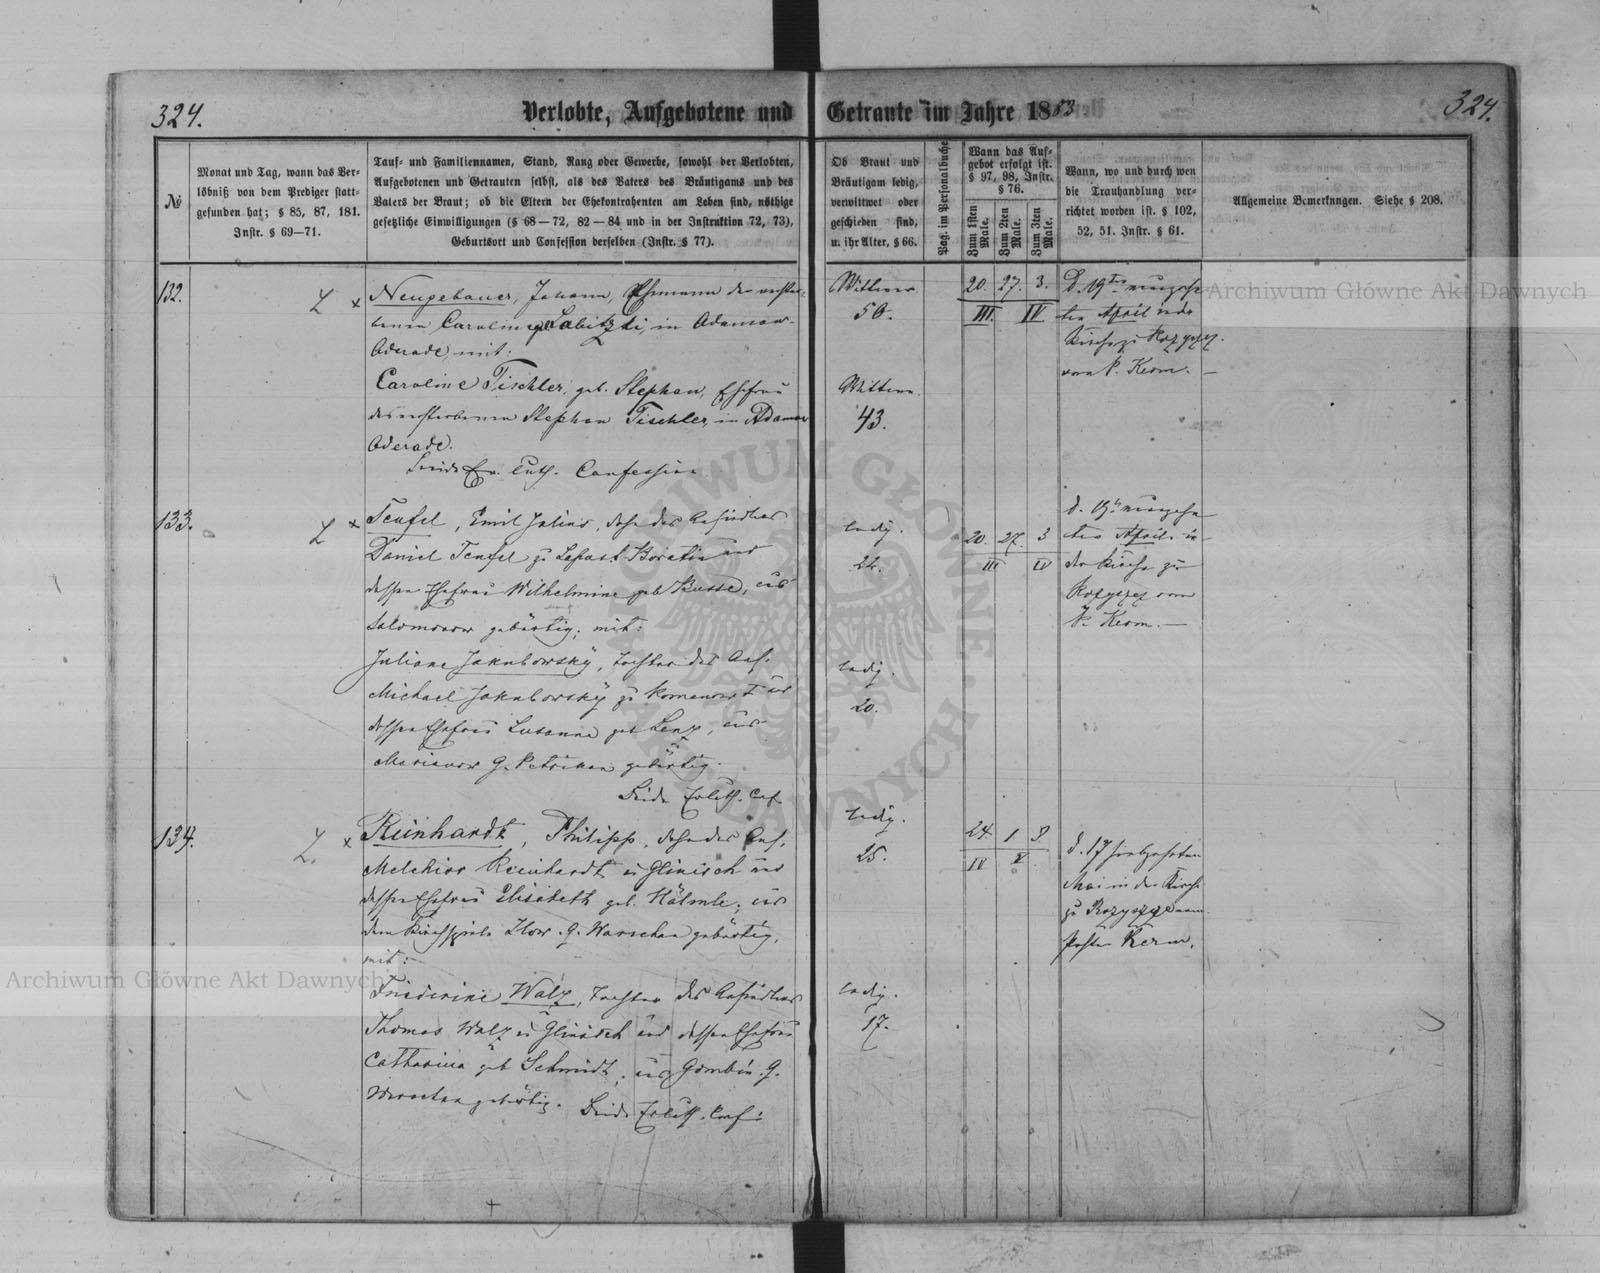 324.
Verlobte, Aufgebotene und Getraute im Jahre 1883
324.
№
Monat und Tag, wann das Ver-
löbniß von dem Prediger statt-
gefunden hat; § 85, 87, 181.
Instr. § 69—71.
Tauf- und Familiennamen, Stand, Rang oder Gewerbe, sowohl der Verlobten,
Aufgebotenen und Getrauten selbst, als des Vaters des Bräutigams und des
Vaters der Braut; ob die Eltern der Ehekontrahenten am Leben sind, nöthige
gesetzliche Einwilligungen (§ 68—72, 82—84 und in der Instruktion 72, 73),
Geburtsort und Confession derselben (Instr. § 77).
Ob Braut und
Bräutigam ledig,
verwittwet oder
geschieden sind,
u. ihr Alter, § 66.
Pag. im Personalbuche
Wann das Auf-
gebot erfolgt ist.
§ 97, 98, Instr.
§ 76.
Zum 1sten Male.
Zum 2ten Male.
Zum 3ten Male.
Wann, wo und durch wen
die Trauhandlung ver-
richtet worden ist. § 102,
52, 51. Instr. § 61.
Allgemeine Bemerkungen. Siehe § 208.
132.
Neugebauer, Johann, Ehemann der verstor-
benen Caroline geb. in Adamow-
Aderade, mit:
Caroline Tischler, geb. Stephan, Ehefrau
des verstorbenen Stephan Tischler, in Adamow
Aderade.
Beide Ev. luth. Confession
Wittwer
50.
Wittwe
43.
20. 27. 3.
III. IV.
D. 19ten neunzehn-
ten April in der
Kirche zu Rozyszcz.
vom P. Kerm. —
133.
Teufel, Emil Julius, Sohn des Ansiedlers
Daniel Teufel zu und
dessen Ehefrau Wilhelmine geb. Busse, aus
gebürtig, mit:
Juliane Jakubowsky, Tochter des Ans.
Michael Jakubowsky zu und
dessen Ehefrau Susanna geb. Lenz, aus
G. Petrikau gebürtig.
Beide Ev. luth. Conf.
ledig.
24.
ledig.
20.
20. 27. 3
III IV
d. 19ten neunzehn-
ten April in
der Kirche zu
Rozyszcz vom
P. Kerm. —
134.
Reinhardt, Philipp, Sohn des Ans.
Melchior Reinhardt in Glinisch und
dessen Ehefrau Elisabeth geb. aus
dem Kirchspiele Ilow. G. Warschau gebürtig,
mit:
Friederike Walz, Tochter des Ansiedlers
Thomas Walz in Glinisch und dessen Ehefrau
Catharina geb. Schmidt, aus Gombin. G.
Warschau gebürtig. Beide Ev. luth. Conf:
ledig.
25.
ledig.
17.
24. 1 8.
IV V.
d. 17 siebzehnten
Mai in der Kirche
zu Rozyszcz vom
Pastor Kerm.
Archiwum Główne Akt Dawnych
Archiwum Główne Akt Dawnych
ARCHIWUM GŁÓWNE AKT DAWNYCH